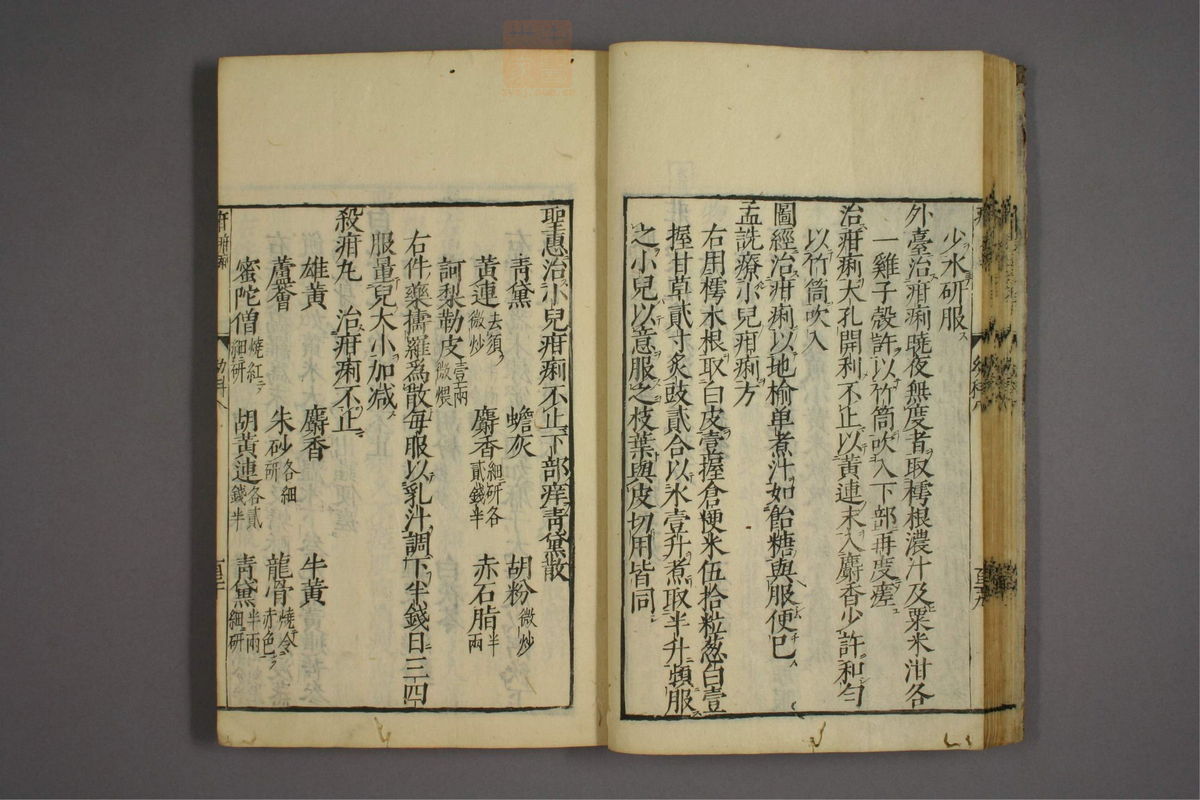 少水研服
外臺治疳痢曉夜無度者取樗根濃汁及粟米泔各
一雞子殼許以竹筒吹入下部再度瘥
治疳痢大孔開利不止以黃連末入麝香少許和勻
以竹筒吹入
圖經治疳痢以地榆单煮汁如飴糖與服便巳
孟詵療小兒疳痢方
右用樗水根取白皮壹握倉粳米伍拾粒葱白壹
握甘草貳寸炙豉貳合以水壹升煮取半升頓服
之小兒以意服之枝葉與皮切用皆同
聖惠治小兒疳痢不止下部痒青黛散
青黛 蟾灰 胡粉微炒
黃連去須微炒 麝香細研各貳錢半 赤石脂半兩
訶梨勒皮壹兩微煨
右件藥擣羅為散每服以乳汁調下半錢日三四
服量兒大小加减
殺疳丸 治疳痢不止
雄黃 麝香 牛黃
蘆薈 朱砂各細研 龍骨燒令赤色
蜜陀僧燒紅細研 胡黃連各貳錢半 青黛半兩細研